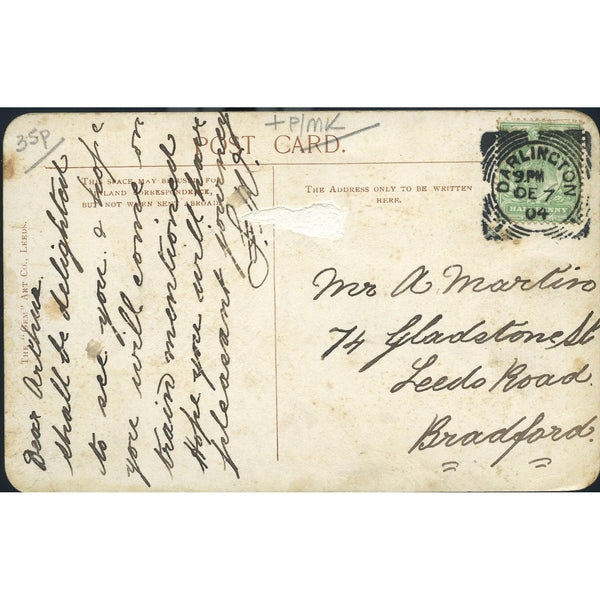 35P
+P/MK
POST CARD.
THIS SPACE MAY BE USED FOR
INLAND CORRESPONDENCE,
BUT NOT WHEN SENT ABROAD.
THE ADDRESS ONLY TO BE WRITTEN
HERE.
THE "GEM" ART CO., LEEDS.
DARLINGTON
9PM
DE 7
04
HALFPENNY
Dear Arthur.
shall be delighted
to see you. & hope
you will come on
train mentioned
Hope you will have
pleasant journey
Mr A Martin
74 Gladstone St
Leeds Road.
Bradford.